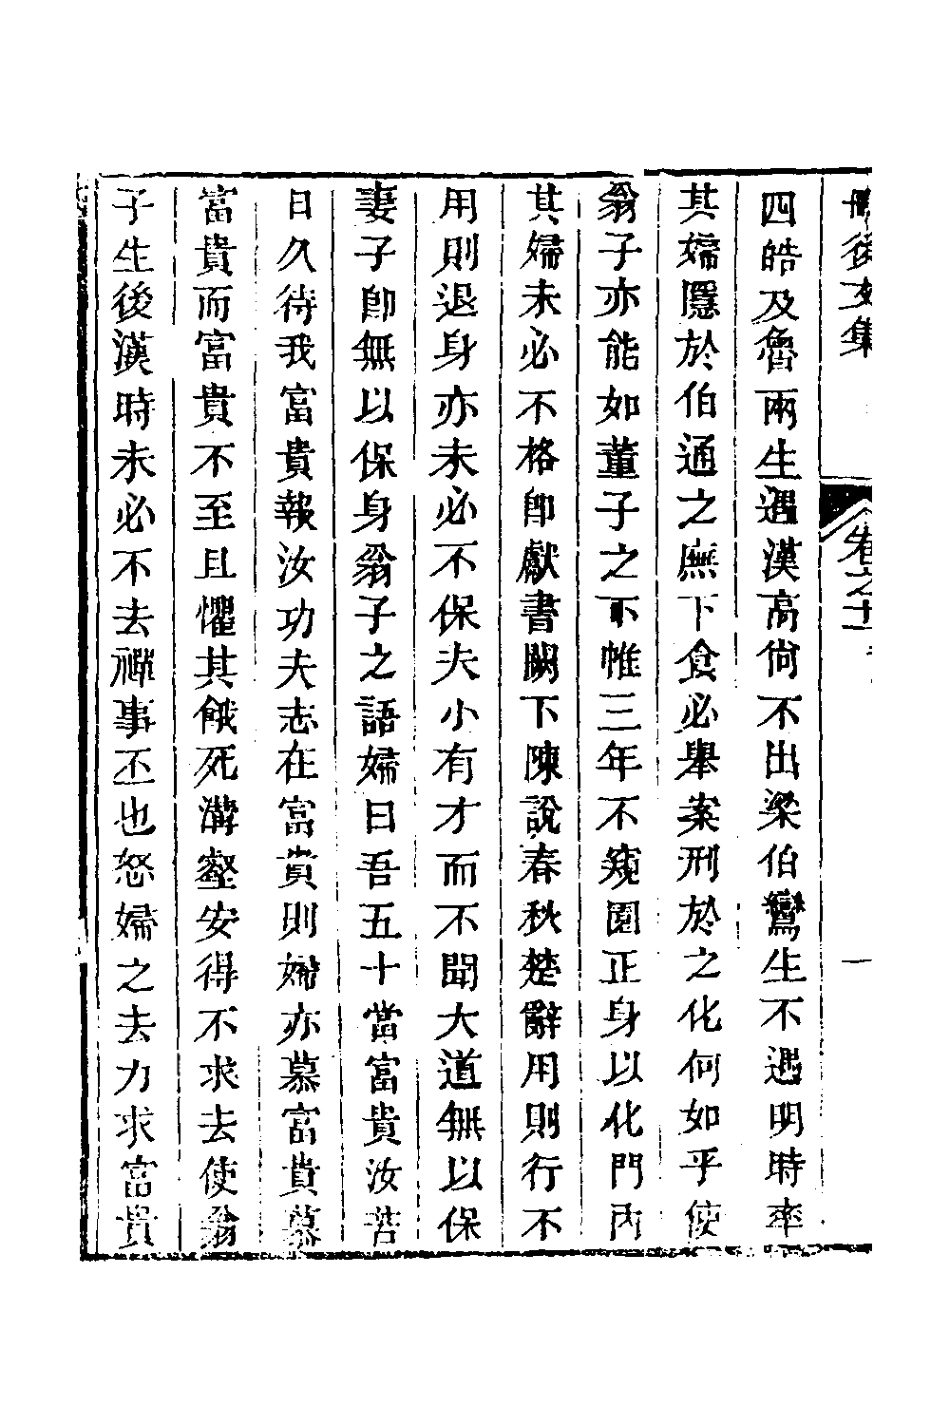 後文集 卷之十 一
四皓及魯兩生遇漢高尙不出梁伯鸞生不遇明時率
其婦隱於伯通之廡下食必舉案刑於之化何如乎使
翁子亦能如董子之下帷三年不窺園正身以化門內
其婦未必不格卽獻書闕下陳說春秋楚辭用則行不
用則退身亦未必不保夫小有才而不聞大道無以保
妻子卽無以保身翁子之語婦曰吾五十當富貴汝苦
日久待我富貴報汝功夫志在富貴則婦亦慕富貴慕
富貴而富貴不至且懼其餓死溝壑安得不求去使翁
子生後漢時未必不去禪事丕也怒婦之去力求富貴